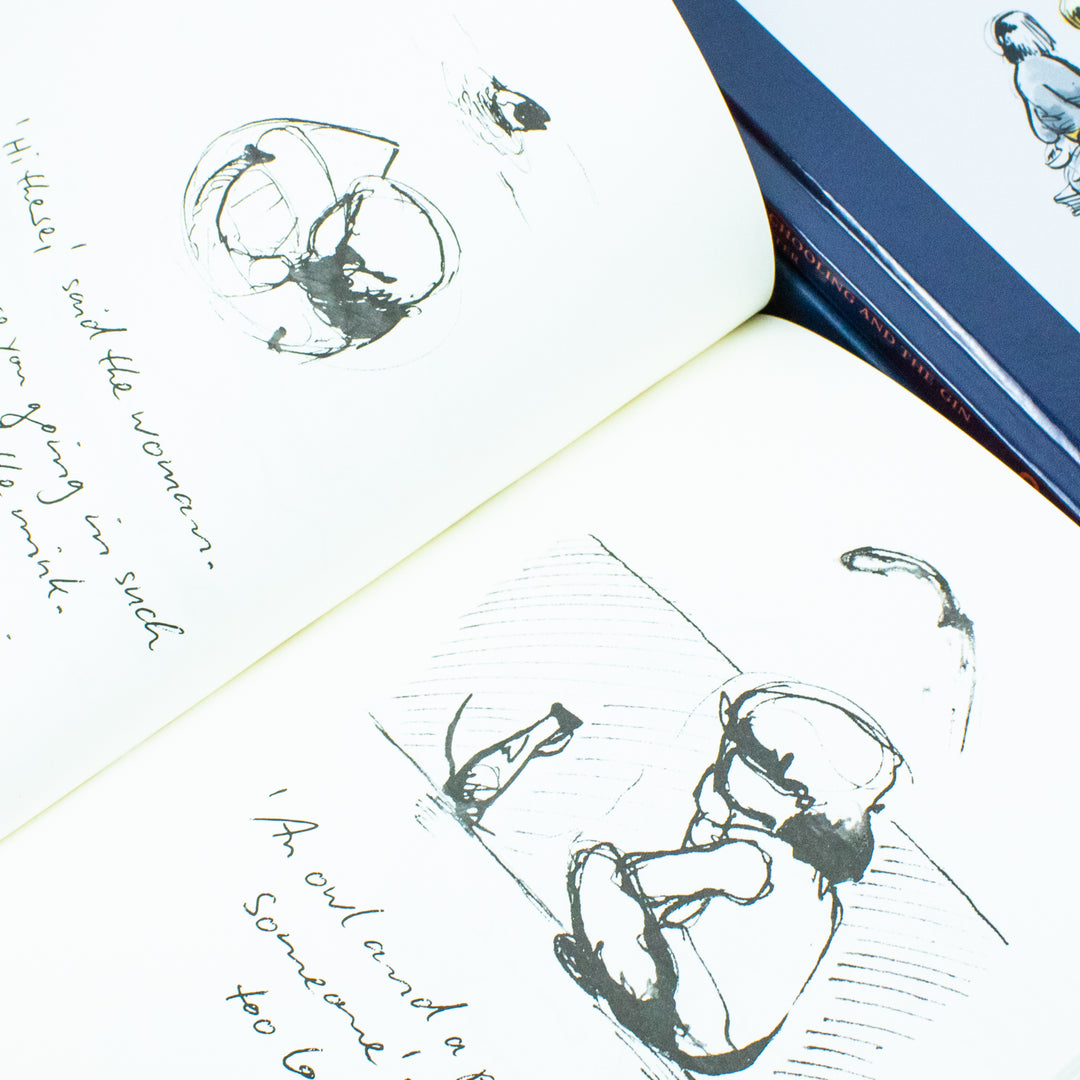 'Hi there,' said the woman.
you going in such
mink.
'An owl and a
someone'
too
CHOOLING AND THE GIN